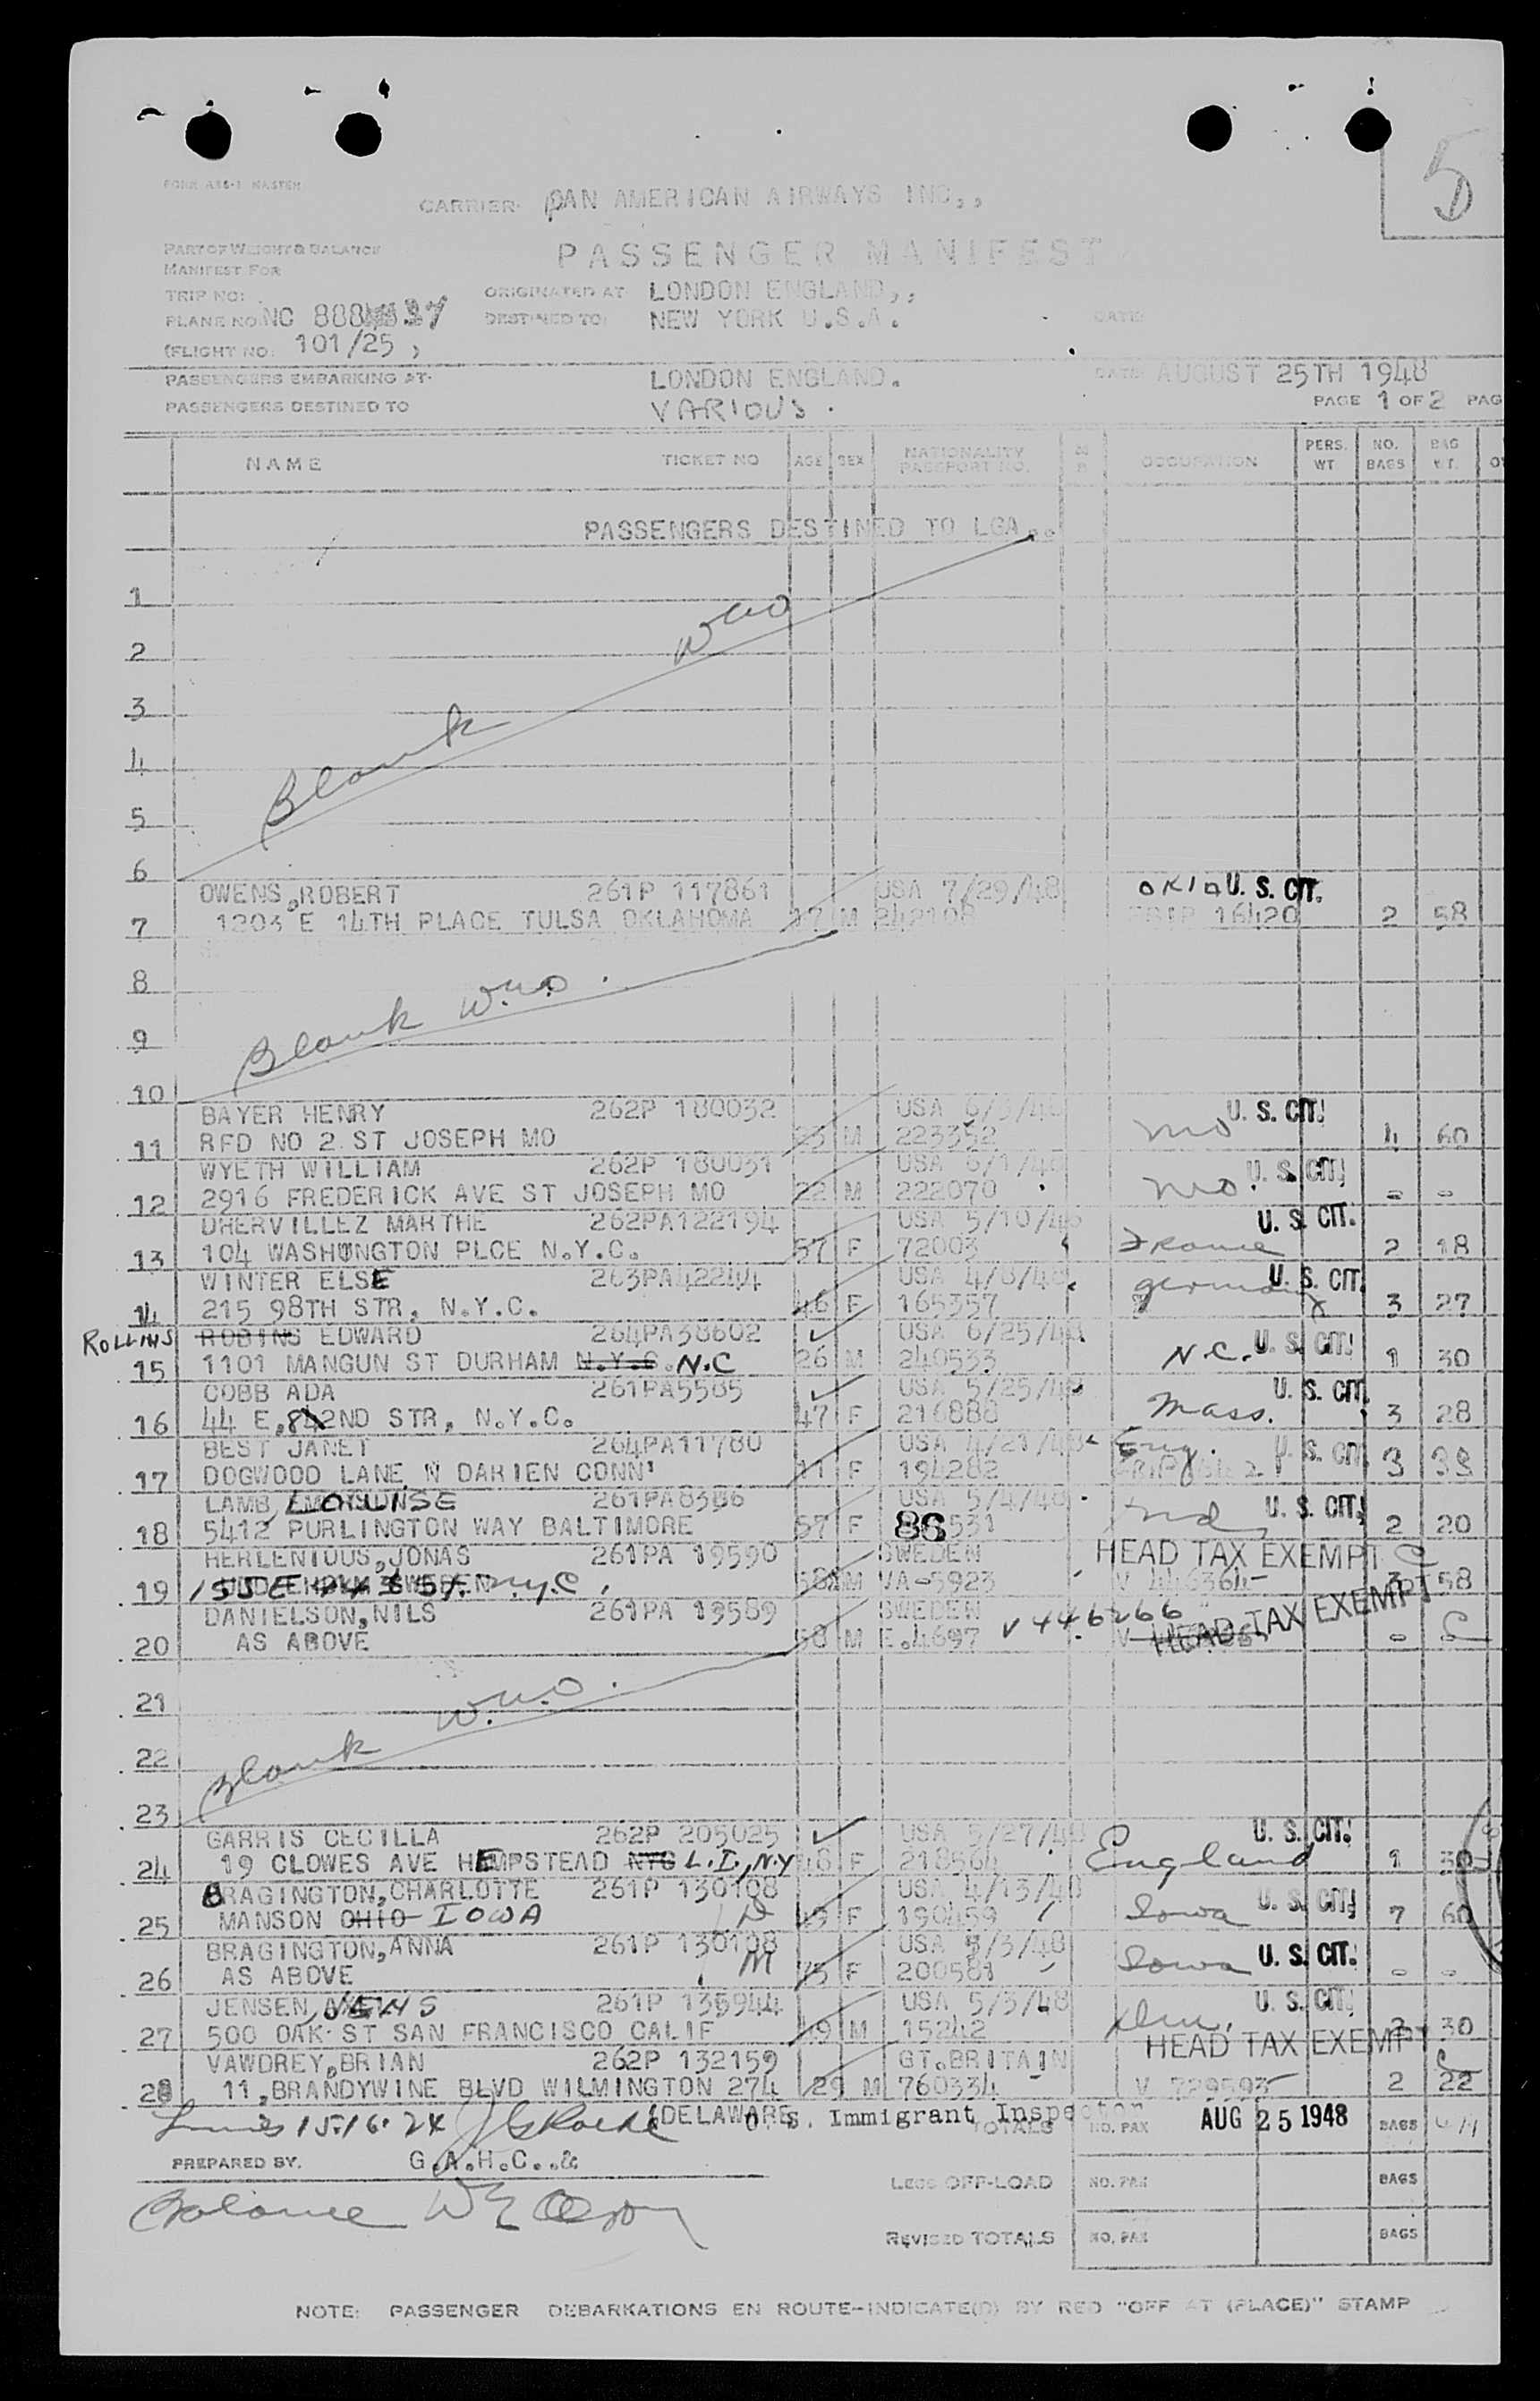 5
FORM A&S-1 MASTER
CARRIER- PAN AMERICAN AIRWAYS INC,,
PART OF WEIGHT & BALANCE
MANIFEST FOR
PASSENGER MANIFEST
TRIP NO:
ORIGINATED AT LONDON ENGLAND,,
PLANE NO: NC 888 37
DESTINED TO: NEW YORK U.S.A.
DATE:
(FLIGHT NO: 101/25 )
PASSENGERS EMBARKING AT- LONDON ENGLAND.
DATE: AUGUST 25TH 1948
PASSENGERS DESTINED TO VARIOUS.
PAGE 1 OF 2 PAG
NAME TICKET NO AGE SEX NATIONALITY PASSPORT NO. OCCUPATION PERS. WT NO. BAGS BAG WT.
PASSENGERS DESTINED TO LGA..
1
2
3
4
5
6
Blank WWO
OWENS,ROBERT 261P 117861 USA 7/29/48 OKLA U. S. CIT.
7 1203 E 14TH PLACE TULSA OKLAHOMA 17 M 242108 16420 2 58
8
9
10
Blank W.W.O.
BAYER HENRY 262P 180032 USA 6/3/48 U. S. CIT.
11 RFD NO 2 ST JOSEPH MO 23 M 223352 Mo 4 60
WYETH WILLIAM 262P 180031 USA 6/1/48 U. S. CIT.
12 2916 FREDERICK AVE ST JOSEPH MO 22 M 222070 Mo. - -
DHERVILLEZ MARTHE 262PA122194 USA 5/10/48 U. S. CIT.
13 104 WASHUNGTON PLCE N.Y.C. 57 F 72003 France 2 18
WINTER ELSE 263PA42244 USA 4/8/48 U. S. CIT.
14 215 98TH STR, N.Y.C. 46 F 165357 Germany 3 27
ROLLINS ROBINS EDWARD 264PA38602 USA 6/25/48 U. S. CIT.
15 1101 MANGUN ST DURHAM N.Y.C. N.C 26 M 240533 N.C. 1 30
COBB ADA 261PA5585 USA 5/25/48 U. S. CIT.
16 44 E,82ND STR, N.Y.C. 47 F 216888 Mass. 3 28
BEST JANET 264PA11780 USA 4/21/48 Eng. U. S. CIT.
17 DOGWOOD LANE N DARIEN CONN' 11 F 194282 3 33
LAMB, LOUISE 261PA8386 USA 5/4/48 U. S. CIT.
18 5412 PURLINGTON WAY BALTIMORE 57 F 86531 Md, 2 20
HERLENIOUS,JONAS 261PA 19590 SWEDEN HEAD TAX EXEMPT C
19 155 E 44 St. N.Y.C, 58 M VA-5923 V 446364 3 58
DANIELSON,NILS 261PA 19589 SWEDEN V446266 HEAD TAX EXEMPT
20 AS ABOVE 58 M E.4697 - C
21
22
23
Blank W.W.O.
GARRIS CECILLA 262P 205025 USA 5/27/48 U. S. CIT.
24 19 CLOWES AVE HEMPSTEAD NYC L.I., N.Y 48 F 218564 England 1 30
BRAGINGTON,CHARLOTTE 261P 130108 USA 4/13/48 U. S. CIT.
25 MANSON OHIO IOWA D 49 F 190459 Iowa 7 60
BRAGINGTON,ANNA 261P 130108 USA 5/3/48 U. S. CIT.
26 AS ABOVE M 75 F 200581 Iowa - -
JENSEN, JENS 261P 135944 USA 5/3/48 U. S. CIT.
27 500 OAK ST SAN FRANCISCO CALIF 49 M 15242 Den. 2 30
VAWDREY,BRIAN 262P 132159 GT.BRITAIN HEAD TAX EXEMPT
28 11,BRANDYWINE BLVD WILMINGTON 274 29 M 760334 V 729593 2 22
(DELAWARE
Lines 15.16.24
U. S. Immigrant Inspector
TOTALS NO. PAX AUG 25 1948 BAGS
PREPARED BY. G.A.H.C..
LESS OFF-LOAD NO. PAX BAGS
Balance
REVISED TOTALS NO. PAX BAGS
NOTE: PASSENGER DEBARKATIONS EN ROUTE-INDICATE(D) BY RED "OFF AT (PLACE)" STAMP